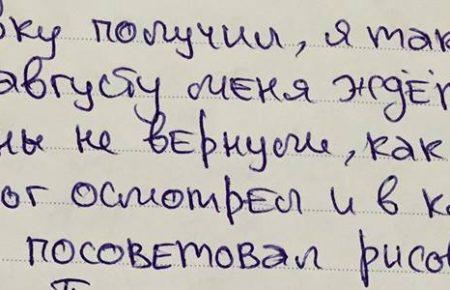 вку получил, я так
августу меня ждёт
ны не вернули, как
ог осмотрел и в к
посоветовал рисов